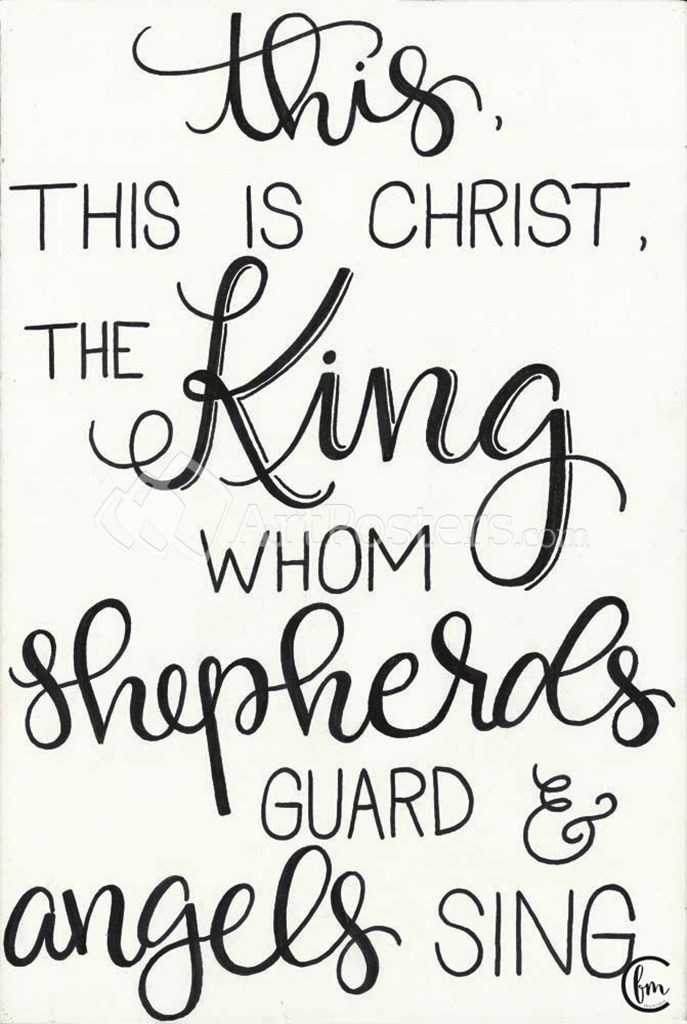 this,
THIS IS CHRIST,
THE King
ArtPosters.com
WHOM
shepherds
GUARD &
angels SING
fbm